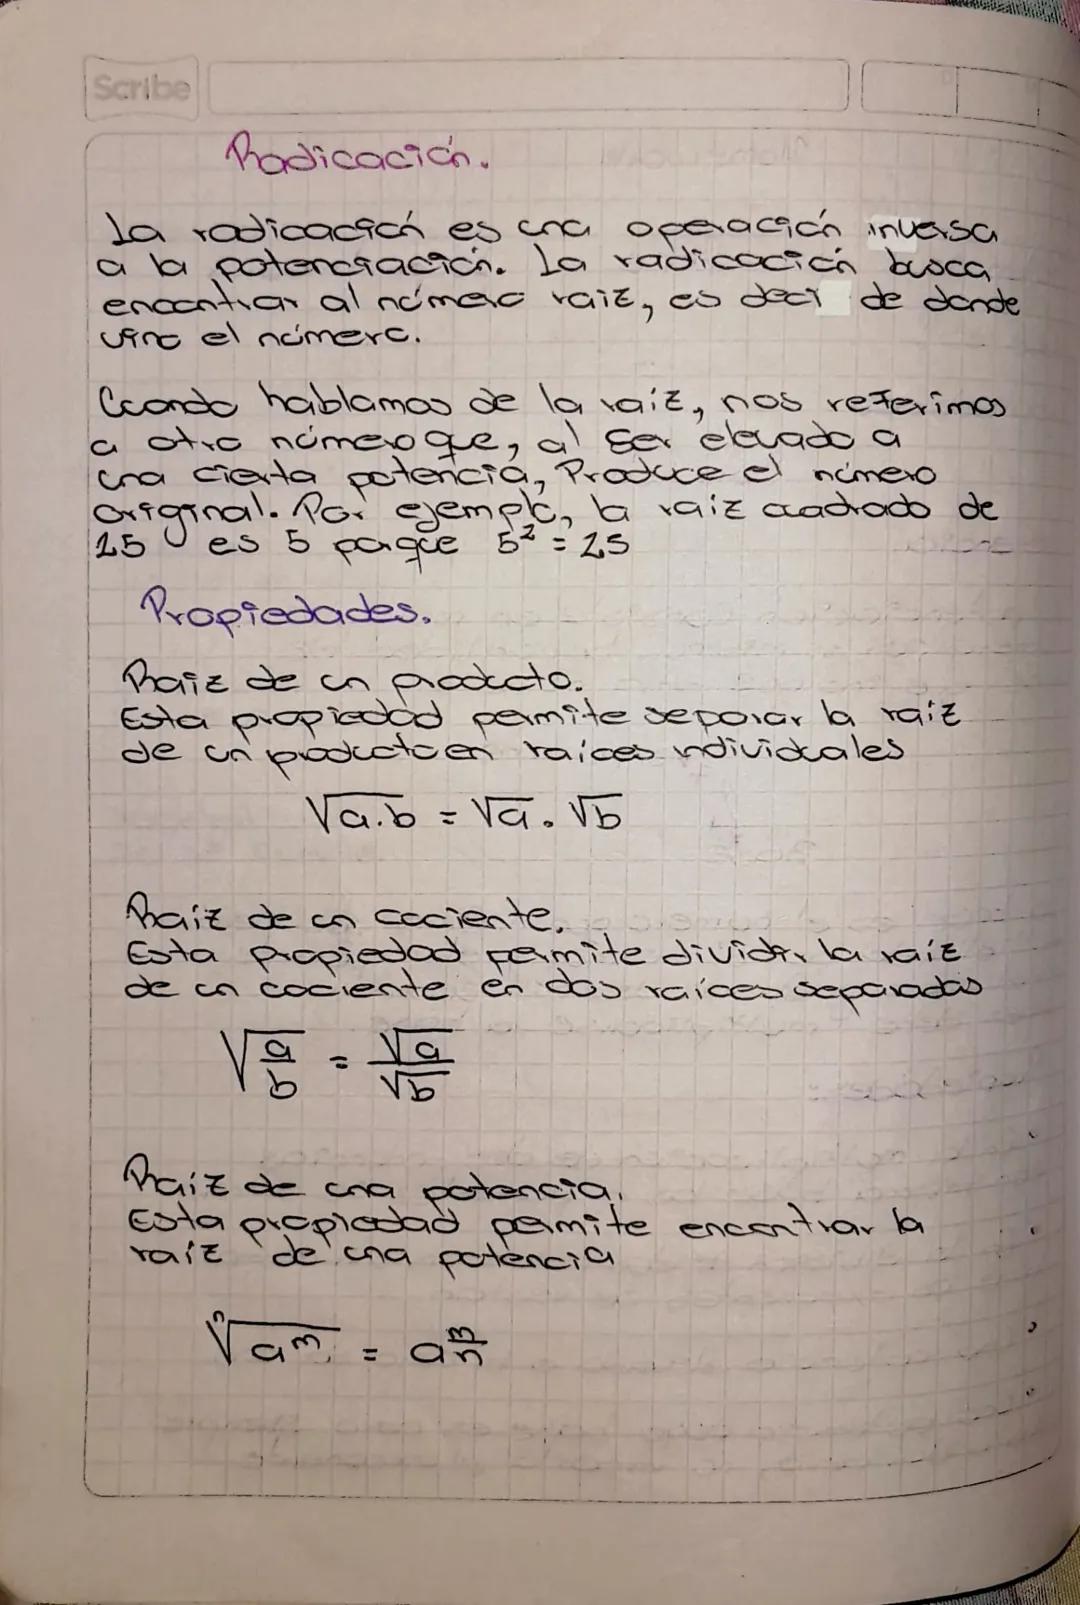 Scribe
Radicación.
La radicación es una operación inversa
a la potenciación. La radicación busca
encontrar al número raiz, es deci de donde
vino el número.
Cuando hablamos de la raíz, nos referimos
a otro número que, al ser elevado a
una cierta potencia, Produce el número
original. Por ejemplo, la raiz cuadrado de
25 es 5 porque 5² = 25
Propiedades.
Raiz de un producto.
Esta propiedad permite separar la raiz
de un producto en raíces individuales
√a.b = √a . √b
Raiz de un cociente.
Esta propiedad permite dividir la raíz
de un cociente en dos raíces separadas
√(a/b) = √a/√b
Raiz de una potencia.
Esta propiedad permite encontrar la
raíz de una potencia
ⁿ√aᵐ = a^(m/n)